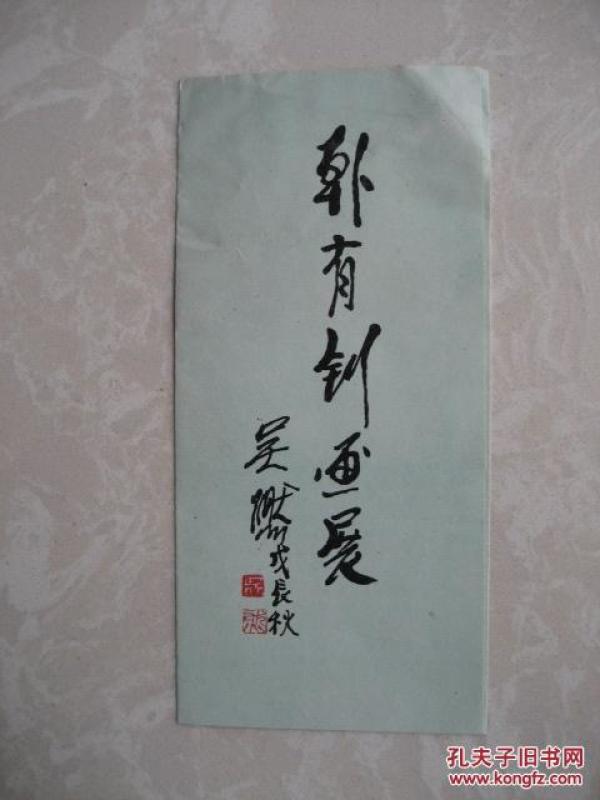 有钊画展
吴燃戊辰秋
孔夫子旧书网
www.kongfz.com